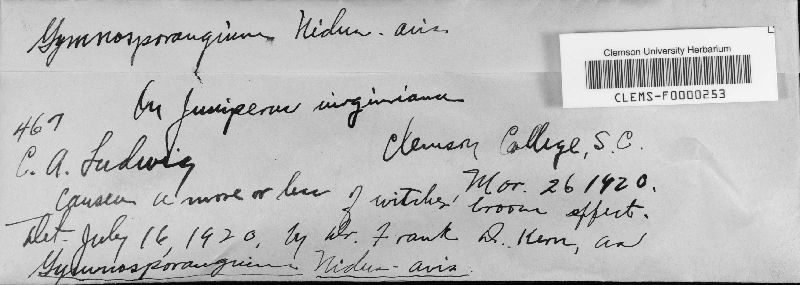 Gymnosporangium Nidus-avis
Clemson University Herbarium
CLEMS-F0000253
On Juniperus virginiana
467
C. A. Ludwig
Clemson College, S.C.
Mar. 26 1920.
Causes a more or less of witches' broom effect.
Det. July 16, 1920, by Dr. Frank D. Kern, as
Gymnosporangium Nidus-avis.